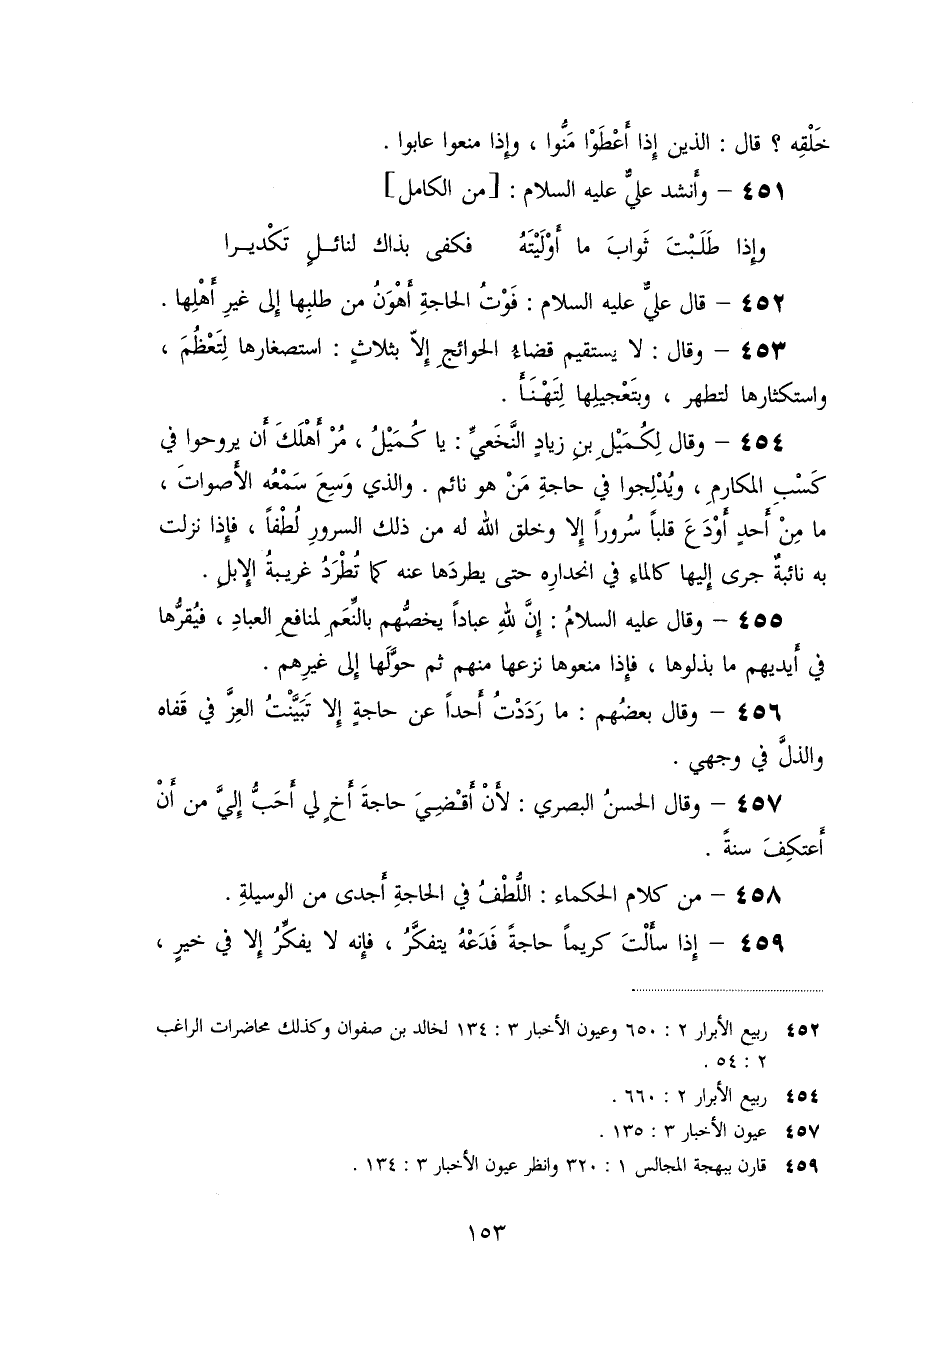 خَلْقِه ؟ قال : الذين إِذا أَعْطَوْا مَنُّوا ، وإِذا منعوا عابوا .
٤٥١ – وأَنشد عليٌّ عليه السلام : [من الكامل]
وإِذا طَلَبْتَ ثَوابَ ما أَوْلَيْتَهُ فكفى بذاك لنائـلٍ تَكْديـرا
٤٥٢ – قال عليٌّ عليه السلام : فَوْتُ الحاجةِ أَهْوَنُ من طلبِها إِلى غيرِ أَهْلِها .
٤٥٣ – وقال : لا يستقيم قضاءُ الحوائجِ إِلاّ بثلاثٍ : استصغارها لِتَعْظُمَ ،
واستكثارها لتطهر ، وبتَعْجيلِها لِتَهْنَأَ .
٤٥٤ – وقال لِكُمَيْلِ بنِ زيادٍ النَّخَعيِّ : يا كُمَيْلُ ، مُرْ أَهْلَكَ أَن يروحوا في
كَسْبِ المكارمِ ، ويُدْلِجوا في حاجةِ مَنْ هو نائم . والذي وَسِعَ سَمْعُه الأَصواتَ ،
ما مِنْ أَحدٍ أَوْدَعَ قلباً سُروراً إِلا وخلق الله له من ذلك السرورِ لُطْفاً ، فإِذا نزلت
به نائبةٌ جرى إِليها كالماءِ في انحدارِه حتى يطردَها عنه كما تُطْرَدُ غريبةُ الإِبلِ .
٤٥٥ – وقال عليه السلامُ : إِنَّ للهِ عباداً يخصُّهم بالنِّعَمِ لمنافعِ العبادِ ، فيُقرُّها
في أَيديهم ما بذلوها ، فإِذا منعوها نزعها منهم ثم حوَّلَها إِلى غيرِهم .
٤٥٦ – وقال بعضُهم : ما رَدَدْتُ أَحداً عن حاجةٍ إِلا تَبَيَّنْتُ العِزَّ في قَفاه
والذلَّ في وجهي .
٤٥٧ – وقال الحسنُ البصري : لأَنْ أَقْضِيَ حاجةَ أَخٍ لي أَحَبُّ إِليَّ من أَنْ
أَعتكِفَ سنةً .
٤٥٨ – من كلام الحكماء : اللُّطْفُ في الحاجةِ أَجدى من الوسيلةِ .
٤٥٩ – إِذا سأَلْتَ كريماً حاجةً فَدَعْهُ يتفكَّرُ ، فإِنه لا يفكِّرُ إِلا في خيرٍ ،
٤٥٢ ربيع الأبرار ٢ : ٦٥٠ وعيون الأخبار ٣ : ١٣٤ لخالد بن صفوان وكذلك محاضرات الراغب
٢ : ٥٤ .
٤٥٤ ربيع الأبرار ٢ : ٦٦٠ .
٤٥٧ عيون الأخبار ٣ : ١٣٥ .
٤٥٩ قارن ببهجة المجالس ١ : ٣٢٠ وانظر عيون الأخبار ٣ : ١٣٤ .
١٥٣